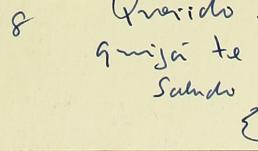 8 Querido
quizá te
Saludo